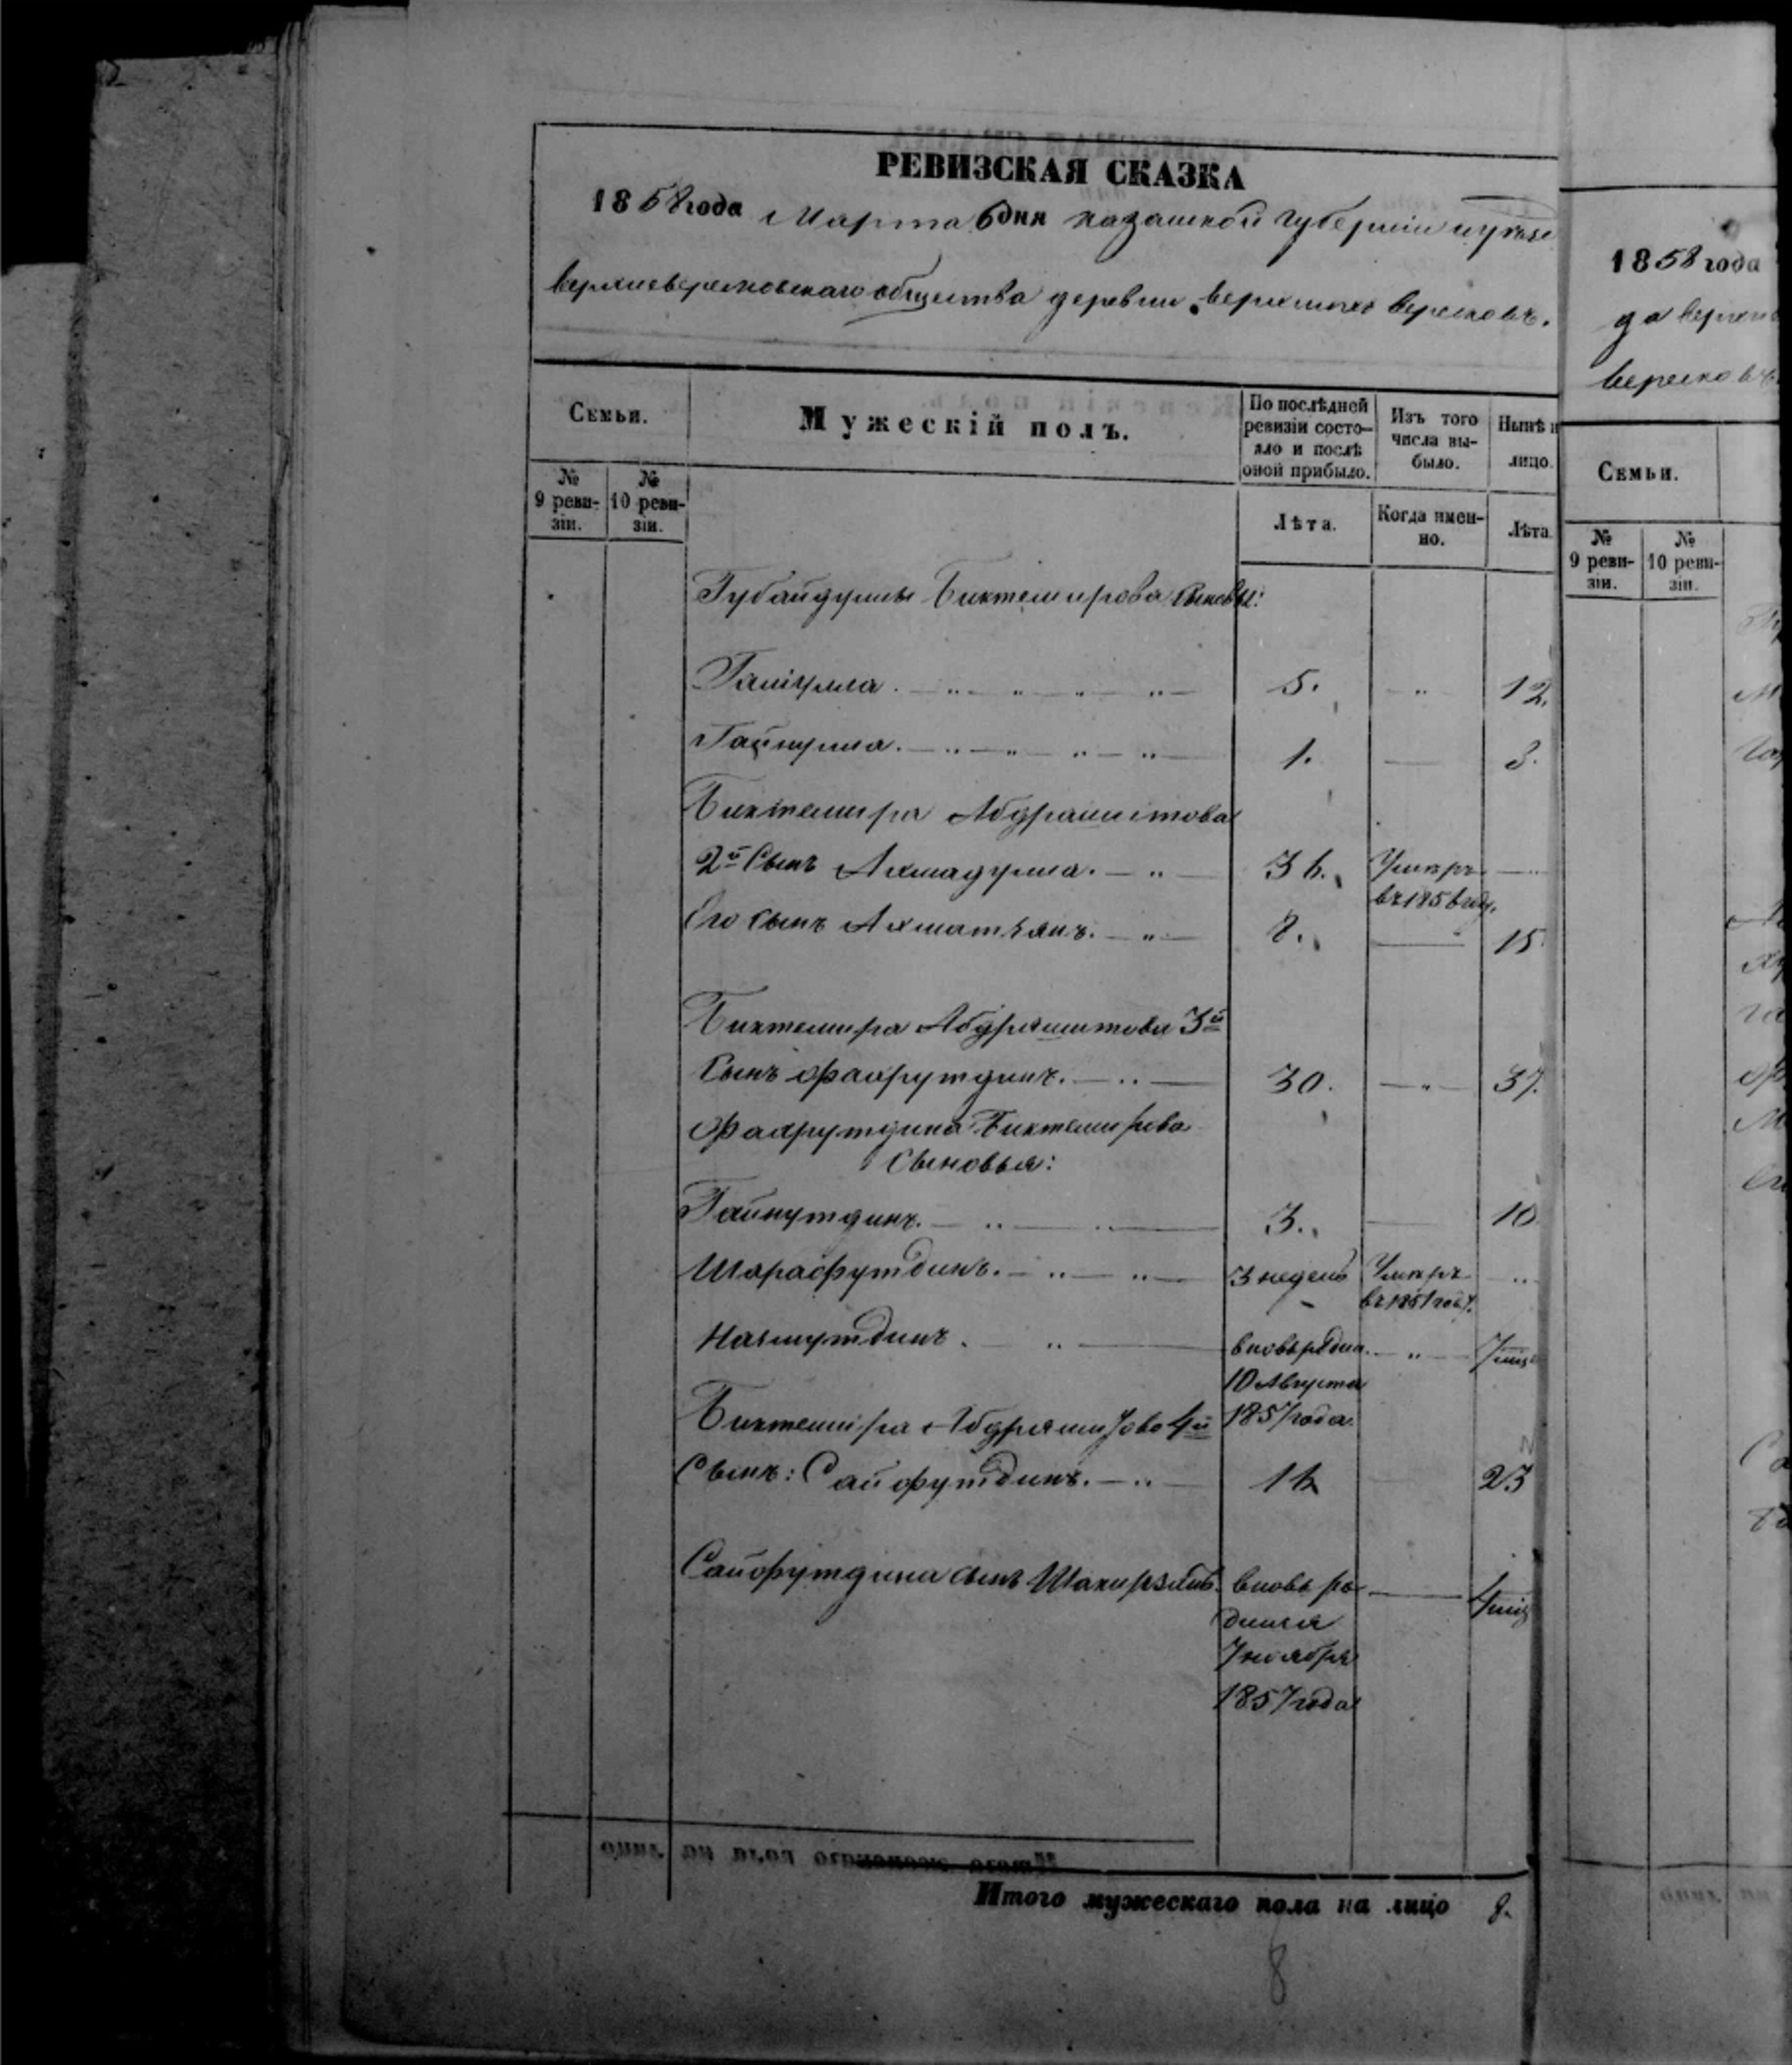 РЕВИЗСКАЯ СКАЗКА
1858 года Марта 6 дня Казанской губернии
общества деревни Верхнихъ Верезковъ.
Семьи.
Мужескій полъ.
По послѣдней ревизіи состояло и послѣ оной прибыло.
Изъ того числа выбыло.
Нынѣ
лицо.
№ 9 ревизіи.
№ 10 ревизіи.
Лѣта.
Когда именно.
Лѣта
Губайдуллы Биктемирова сыновья:
5. 12.
Гайнулла. 1. 8.
Биктемира Абдрашитова
2й Сынъ Ахмадулла. 36. Умеръ
въ 1856 году.
Его сынъ Ахматзянъ. 8. 15.
Биктемира Абдрашитова 3й
Сынъ Фахрутдинъ. 30. 37.
Фахрутдина Биктемирова
Сыновья:
Гайнутдинъ. 3. 10
Шарафутдинъ. 3 недель Умеръ
въ 1851 году.
вновь родил. 7 мца
10 Августа
Биктемира Абдрашитова 4й 1857 года.
Сынъ: Сайфутдинъ. 16 23
Сайфутдина сынъ Шакирзянъ. вновь ро- 4 мца
дился
7 ноября
1857 года
Итого мужескаго пола на лицо 8.
8
1858 года
да верхне
верезковъ
Семьи.
№ 9 ревизіи.
№ 10 ревизіи.